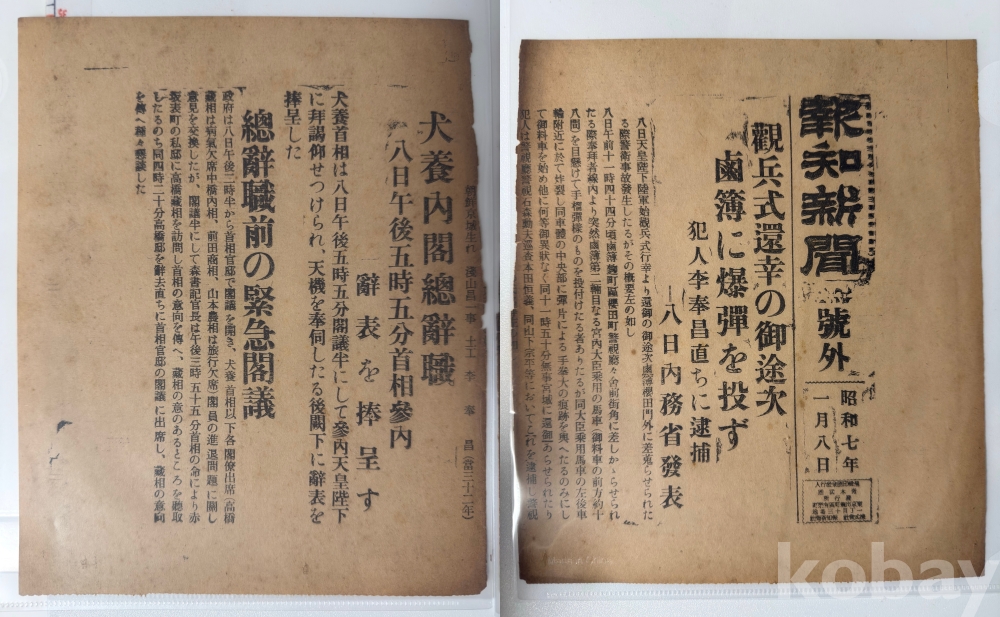 報知新聞
號外
昭和七年
一月八日
觀兵式還幸の御途次
鹵簿に爆彈を投ず
犯人李奉昌直ちに逮捕
八日内務省發表
八日天皇陛下陸軍始觀兵式行幸より還御の御途次鹵簿櫻田門外に差蒐らせられた
る際警衛事故發生したるがその概要左の如し
八日午前十一時四十四分頃鹵簿麹町區櫻田町警視廳々舍前街角に差しかゝらせられ
たる際奉拜者線内より突然鹵簿第二輛目なる宮内大臣乘用の馬車(御料車の前方約十
八間)を目懸けて手榴彈樣のものを投付けたる者ありたるが同大臣乘用馬車の左後車
輪附近に於て炸裂し同車體の中央部に彈片による 拳大の痕跡を與へたるのみにし
て御料車を始め他に何等御異狀なく同十一時五十分無事宮城に還御あらせられたり
犯人は警視廳警視石森勳夫巡査本田恒義、同山下宗平等においてこれを逮捕し警視
朝鮮京城生れ 淺山昌一事 土工 李奉昌(當三十二年)
犬養内閣總辭職
八日午後五時五分首相參内
辭表を捧呈す
犬養首相は八日午後五時五分閣議半にして參内天皇陛下
に拜謁仰せつけられ、天機を奉伺したる後闕下に辭表を
捧呈した
總辭職前の緊急閣議
政府は八日午後二時半から首相官邸で閣議を開き、犬養首相以下各閣僚出席(高橋
藏相は病氣欠席中橋内相、前田商相、山本農相は旅行欠席)閣員の進退問題に關し
意見を交換したが、閣議半にして森書記官長は午後三時五十五分首相の命により赤
坂表町の私邸に高橋藏相を訪問し首相の意向を傳へ、藏相の意のあるところを聽取
したるのち同四時二十分高橋邸を辭去直ちに首相官邸の閣議に出席し、藏相の意向
を傳へ種々懇談した
kobay